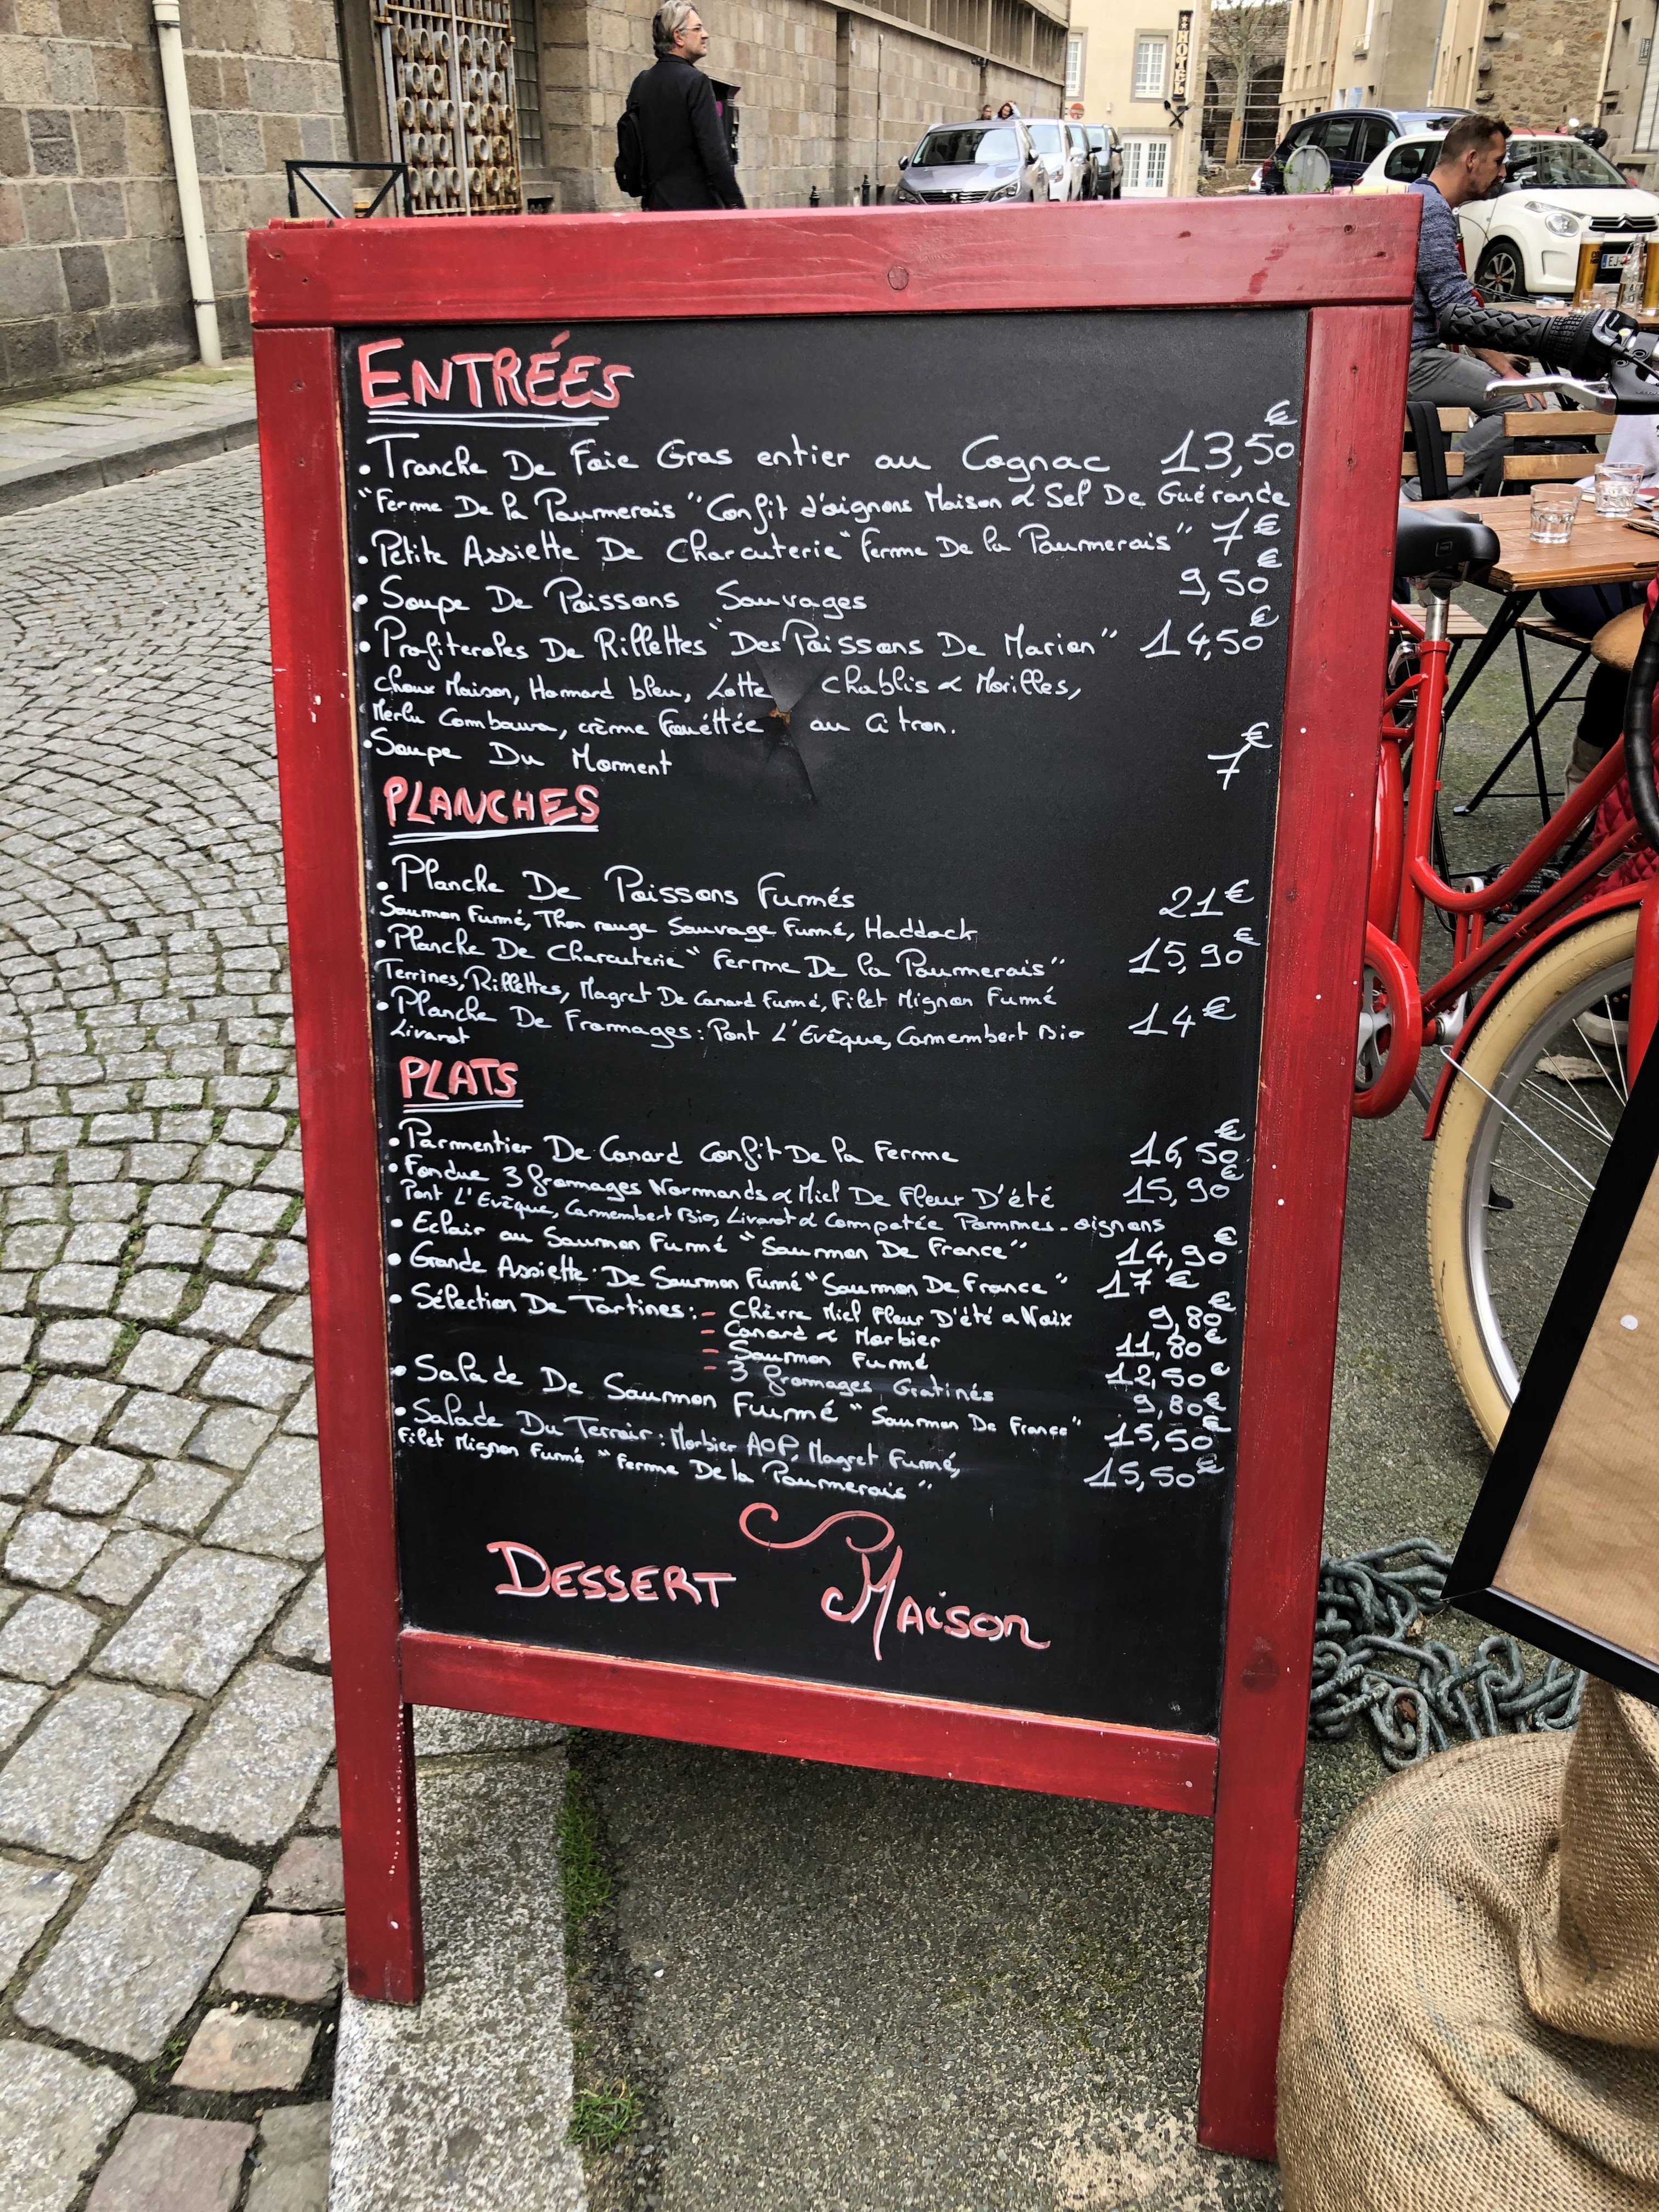 HOTEL
ENTRÉES
• Tranche De Foie Gras entier au Cognac 13,50€
"Ferme De la Paumerais" Confit d'oignons Maison & Sel De Guérande
• Petite Assiette De Charcuterie "Ferme De la Paumerais" 7€
• Soupe De Poissons Sauvages 9,50€
• Profiteroles De Rillettes "Des Poissons De Marion" 14,50€
Choux Maison, Homard bleu, Lotte Chablis & Morilles,
Merlu Combawa, crème fouéttée au Citron.
• Soupe Du Moment 7€
PLANCHES
• Planche De Poissons Fumés 21€
Saumon Fumé, Thon rouge Sauvage Fumé, Haddock
• Planche De Charcuterie "Ferme De la Paumerais" 15,90€
Terrines, Rillettes, Magret De Canard Fumé, Filet Mignon Fumé
• Planche De Fromages : Pont L'Evêque, Camembert Bio 14€
Livarot
PLATS
• Parmentier De Canard Confit De la Ferme 16,50€
• Fondue 3 fromages Normands & Miel De Fleur D'été 15,90€
Pont L'Evêque, Camembert Bio, Livarot & Compotée Pommes-oignons
• Eclair au Saumon Fumé "Saumon De France" 14,90€
• Grande Assiette De Saumon Fumé "Saumon De France" 17€
• Sélection De Tartines : - Chèvre Miel Fleur D'été & Noix 9,80€
- Canard & Morbier 11,80€
- Saumon Fumé 12,50€
- 3 fromages Gratinés 9,80€
• Salade De Saumon Fuumé "Saumon De France" 15,50€
• Salade Du Terroir : Morbier AOP, Magret Fumé,
Filet Mignon Fumé "Ferme De la Paumerais" 15,50€
DESSERT MAISON